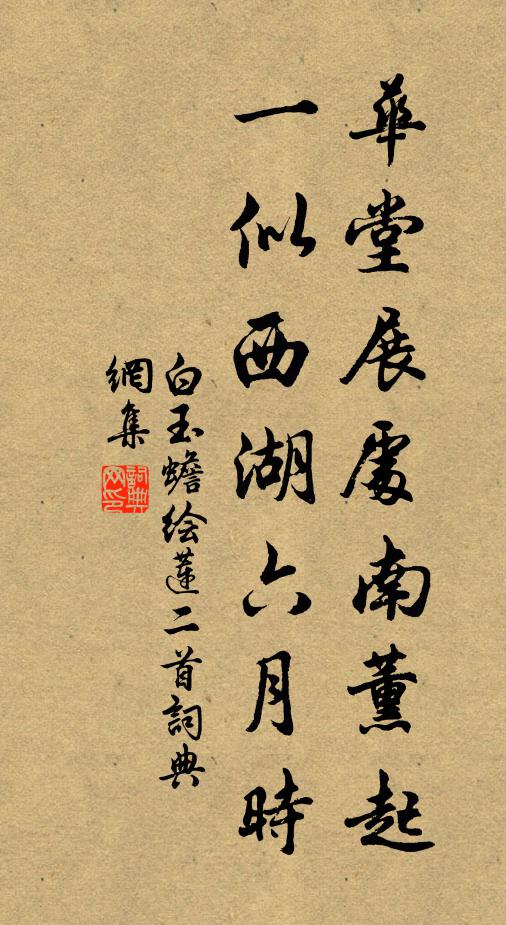 華堂展處南薰起
一似西湖六月時
白玉蟾绘蓮二首詞典
網集
詞典
网印